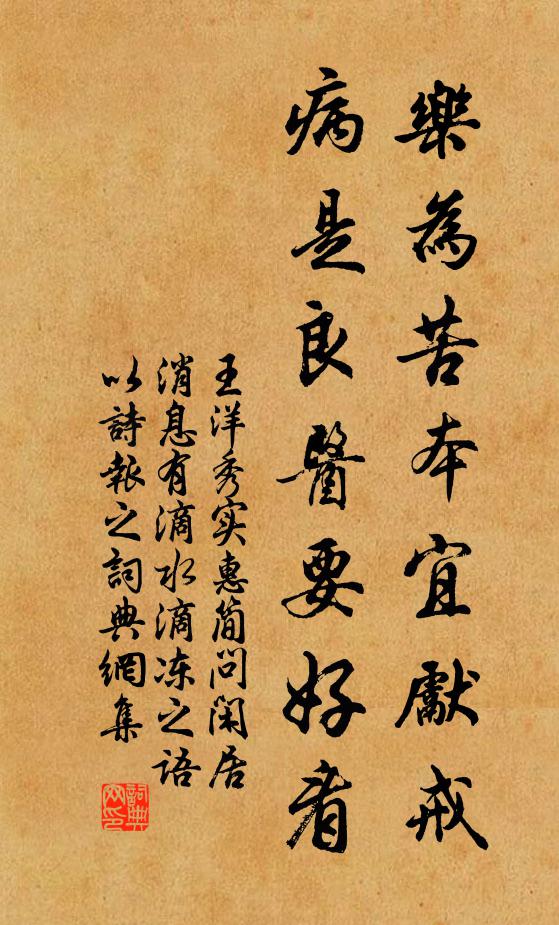 樂為苦本宜獻戒
病是良醫要好看
王洋秀实惠简问闲居
消息有滴水滴冻之语
以詩報之詞典網集
詞典网印